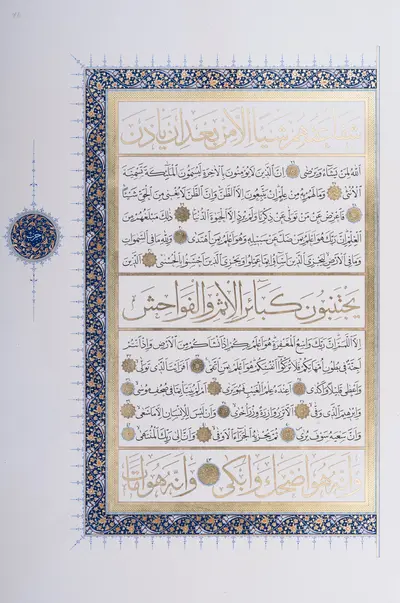 شفاعتهم شيئا الا من بعد ان ياذن
الله لمن يشاء ويرضى ان الذين لا يؤمنون بالاخرة ليسمون الملئكة تسمية
الانثى وما لهم به من علم ان يتبعون الا الظن وان الظن لا يغنى من الحق شيئا
فاعرض عن من تولى عن ذكرنا ولم يرد الا الحيوة الدنيا ذلك مبلغهم من
العلم ان ربك هو اعلم بمن ضل عن سبيله وهو اعلم بمن اهتدى ولله ما فى السموات
وما فى الارض ليجزى الذين اساؤا بما عملوا ويجزى الذين احسنوا بالحسنى الذين
يجتنبون كبائر الاثم والفواحش
الا اللمم ان ربك واسع المغفرة هو اعلم بكم اذ انشاكم من الارض واذ انتم
اجنة فى بطون امهاتكم فلا تزكوا انفسكم هو اعلم بمن اتقى افرايت الذى تولى
واعطى قليلا واكدى اعنده علم الغيب فهو يرى ام لم ينبا بما فى صحف موسى
وابرهيم الذى وفى الا تزر وازرة وزر اخرى وان ليس للانسان الا ما سعى
وان سعيه سوف يرى ثم يجزيه الجزاء الاوفى وان الى ربك المنتهى
وانه هو اضحك وابكى وانه هو امات